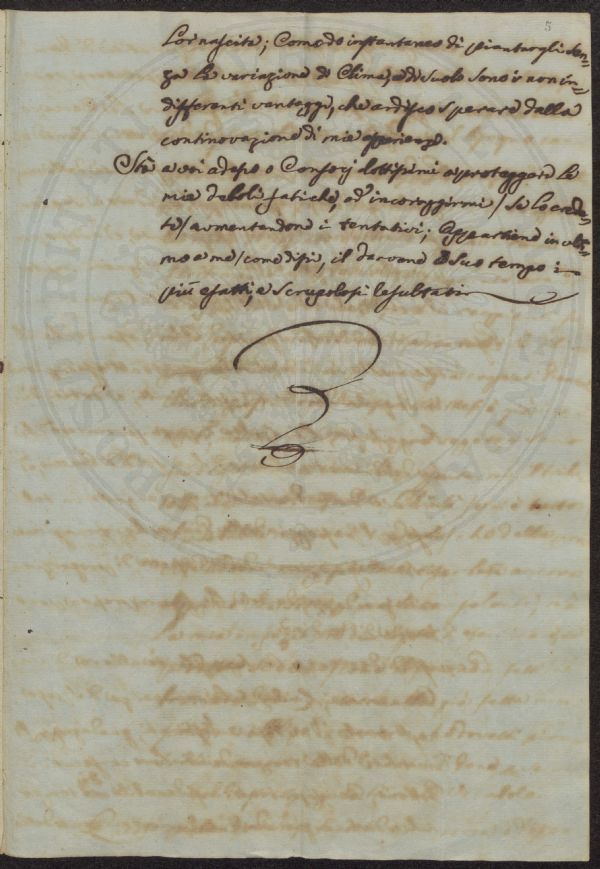 5
Lor nascita; Comodo instantaneo di piantargli sen=
za la variazione di Clima, e di suolo sono i non in=
differenti vantaggi, che ardisco sperare dalla
continovazione di mie esperienze.
Stà a voi adesso o Consocj dottissimi a proteggere le
mie deboli fatiche, ed incoraggirmi / se lo crede=
te / aumentandone i tentativi; Appartiene in ulti=
mo a me / come dissi, il darvene a suo tempo i
più esatti, e scrupolosi resultati